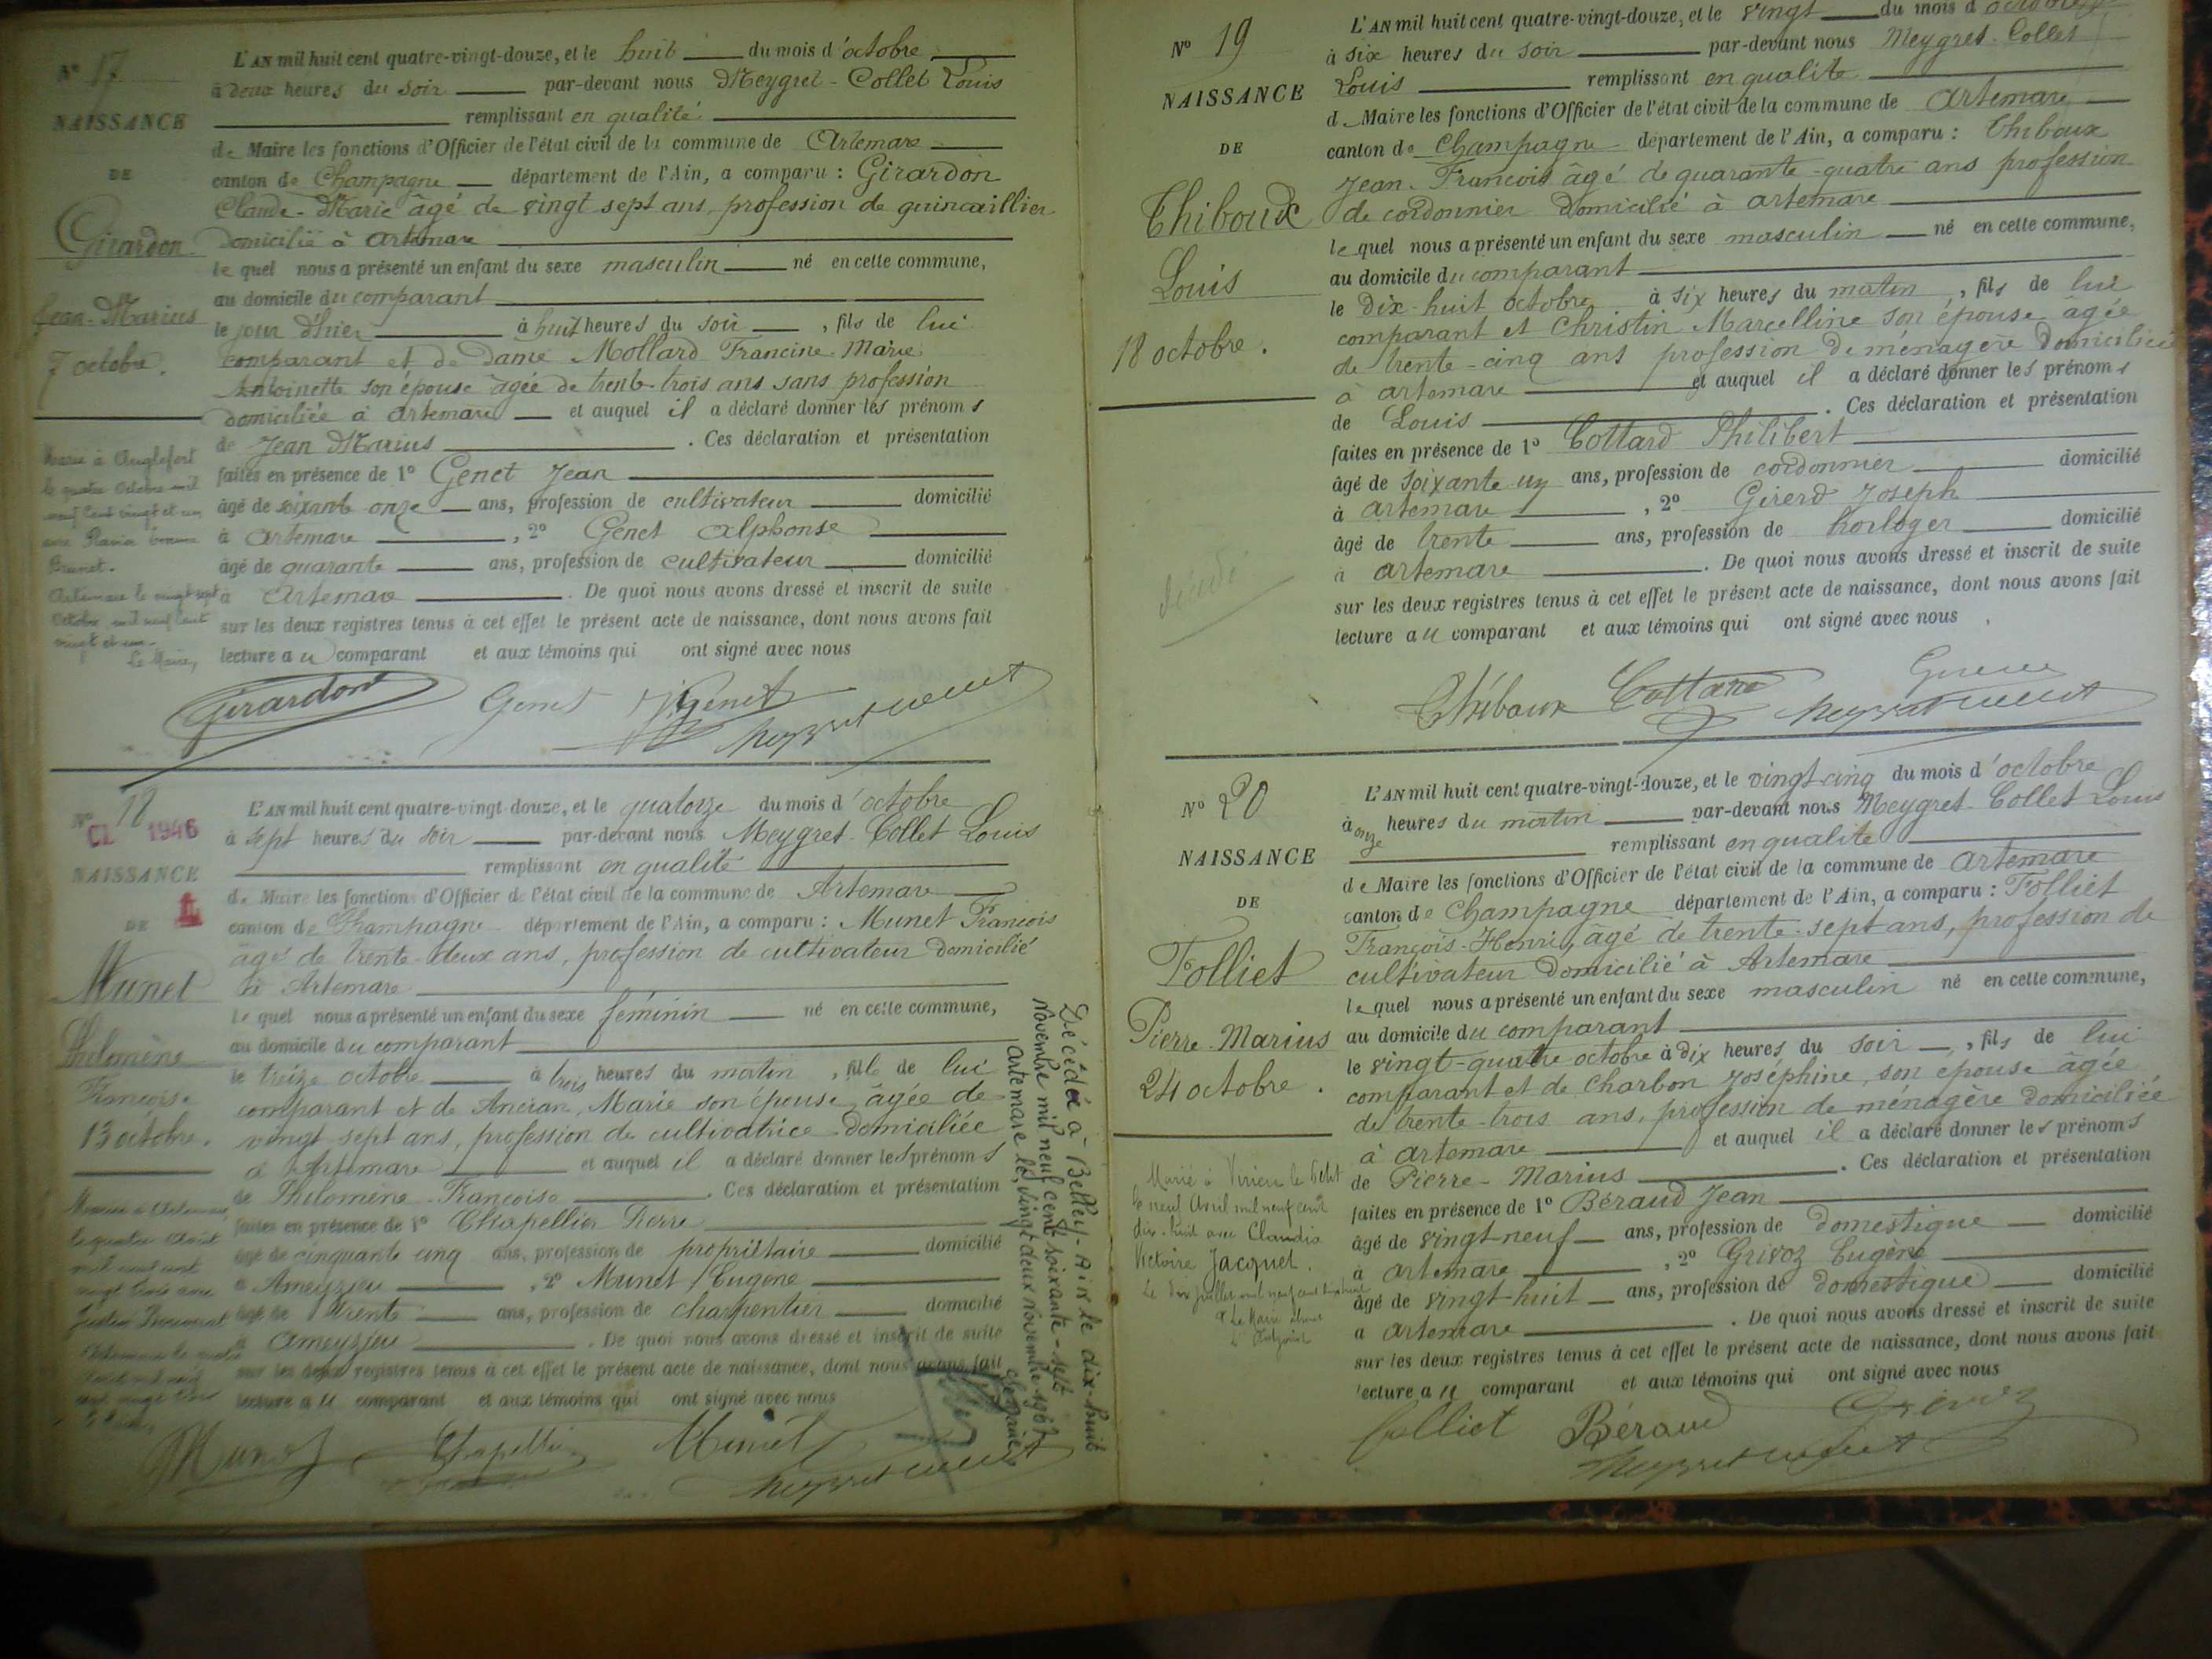 N° 17
NAISSANCE
DE
Girardon
Jean-Marius
7 octobre.
L'AN mil huit cent quatre-vingt-douze, et le huit du mois d'octobre
à deux heures du soir par-devant nous Meygret-Collet Louis
remplissant en qualité
de Maire les fonctions d'Officier de l'état civil de la commune de Artemare
canton de Champagne département de l'Ain, a comparu : Girardon
Claude-Marie âgé de vingt sept ans profession de quincaillier
domicilié à Artemare
lequel nous a présenté un enfant du sexe masculin né en cette commune,
au domicile du comparant
le jour d'hier à huit heures du soir, fils de lui
comparant et de dame Mollard Francine Marie
Antoinette son épouse âgée de trente-trois ans sans profession
domiciliée à Artemare et auquel il a déclaré donner les prénoms
de Jean Marius. Ces déclaration et présentation
faites en présence de 1° Genet Jean
âgé de soixante onze ans, profession de cultivateur domicilié
à Artemare, 2° Genet Alphonse
âgé de quarante ans, profession de cultivateur domicilié
à Artemare. De quoi nous avons dressé et inscrit de suite
sur les deux registres tenus à cet effet le présent acte de naissance, dont nous avons fait
lecture au comparant et aux témoins qui ont signé avec nous
Marié à Anglefort
le quatre Octobre mil
neuf cent vingt et un
avec
Brunet.
Artemare le vingt sept
Octobre mil neuf cent
vingt et un.
Le Maire,
Girardon Genet Genet
N° 18
CL 1946
NAISSANCE
DE
Munet
Philomène
Françoise
13 octobre.
L'AN mil huit cent quatre-vingt-douze, et le quatorze du mois d'octobre
à sept heures du soir par-devant nous Meygret-Collet Louis
remplissant en qualité
de Maire les fonctions d'Officier de l'état civil de la commune de Artemare
canton de Champagne département de l'Ain, a comparu : Munet François
âgé de trente-deux ans, profession de cultivateur domicilié
à Artemare
lequel nous a présenté un enfant du sexe féminin né en cette commune,
au domicile du comparant
le treize octobre à trois heures du matin, fille de lui
comparant et de Ancian Marie son épouse, âgée de
vingt sept ans, profession de cultivatrice domiciliée
à Artemare et auquel il a déclaré donner les prénoms
de Philomène-Françoise. Ces déclaration et présentation
faites en présence de 1° Chapellier Pierre
âgé de cinquante cinq ans, profession de propriétaire domicilié
à Ameyzieu, 2° Munet Eugène
âgé de trente ans, profession de charpentier domicilié
à Ameyzieu. De quoi nous avons dressé et inscrit de suite
sur les deux registres tenus à cet effet le présent acte de naissance, dont nous avons fait
lecture au comparant et aux témoins qui ont signé avec nous
Mariée à Artemare
le quatre Août
mil neuf cent
vingt trois avec
Décédée à Belley-Ain le dix-huit
Novembre mil neuf cent soixante-sept
Artemare le, vingt deux Novembre 1967
Le Maire
Munet Chapellier Munet
N° 19
NAISSANCE
DE
Thiboux
Louis
18 octobre.
L'AN mil huit cent quatre-vingt-douze, et le vingt du mois d'octobre
à six heures du soir par-devant nous Meygret-Collet
Louis remplissant en qualité
de Maire les fonctions d'Officier de l'état civil de la commune de Artemare
canton de Champagne département de l'Ain, a comparu : Thiboux
Jean-François âgé de quarante-quatre ans profession
de cordonnier domicilié à artemare
lequel nous a présenté un enfant du sexe masculin né en cette commune,
au domicile du comparant
le dix-huit octobre à six heures du matin, fils de lui
comparant et Christin Marcelline son épouse âgée
de trente-cinq ans profession de ménagère domiciliée
à artemare et auquel il a déclaré donner les prénoms
de Louis. Ces déclaration et présentation
faites en présence de 1° Cottard Philibert
âgé de soixante un ans, profession de cordonnier domicilié
à artemare, 2° Girerd Joseph
âgé de trente ans, profession de horloger domicilié
à artemare. De quoi nous avons dressé et inscrit de suite
sur les deux registres tenus à cet effet le présent acte de naissance, dont nous avons fait
lecture au comparant et aux témoins qui ont signé avec nous
décédé
Thiboux Cottard
N° 20
NAISSANCE
DE
Folliet
Pierre-Marius
24 octobre.
L'AN mil huit cent quatre-vingt-douze, et le vingt-cinq du mois d'octobre
à onze heures du matin par-devant nous Meygret-Collet Louis
remplissant en qualité
de Maire les fonctions d'Officier de l'état civil de la commune de Artemare
canton de Champagne département de l'Ain, a comparu : Folliet
François-Henri, âgé de trente-sept ans, profession de
cultivateur domicilié à Artemare
lequel nous a présenté un enfant du sexe masculin né en cette commune,
au domicile du comparant
le vingt-quatre octobre à dix heures du soir, fils de lui
comparant et de Charbon Joséphine, son épouse âgée
de trente-trois ans, profession de ménagère domiciliée
à artemare et auquel il a déclaré donner les prénoms
de Pierre-Marius. Ces déclaration et présentation
faites en présence de 1° Béraud Jean
âgé de vingt-neuf ans, profession de domestique domicilié
à artemare, 2° Grivoz Eugène
âgé de vingt-huit ans, profession de domestique domicilié
à artemare. De quoi nous avons dressé et inscrit de suite
sur les deux registres tenus à cet effet le présent acte de naissance, dont nous avons fait
lecture au comparant et aux témoins qui ont signé avec nous
Marié à Virieu le Petit
le neuf Avril mil neuf cent
dix-huit avec Claudia
Victoire Jacquet.
Folliet Béraud Grivoz